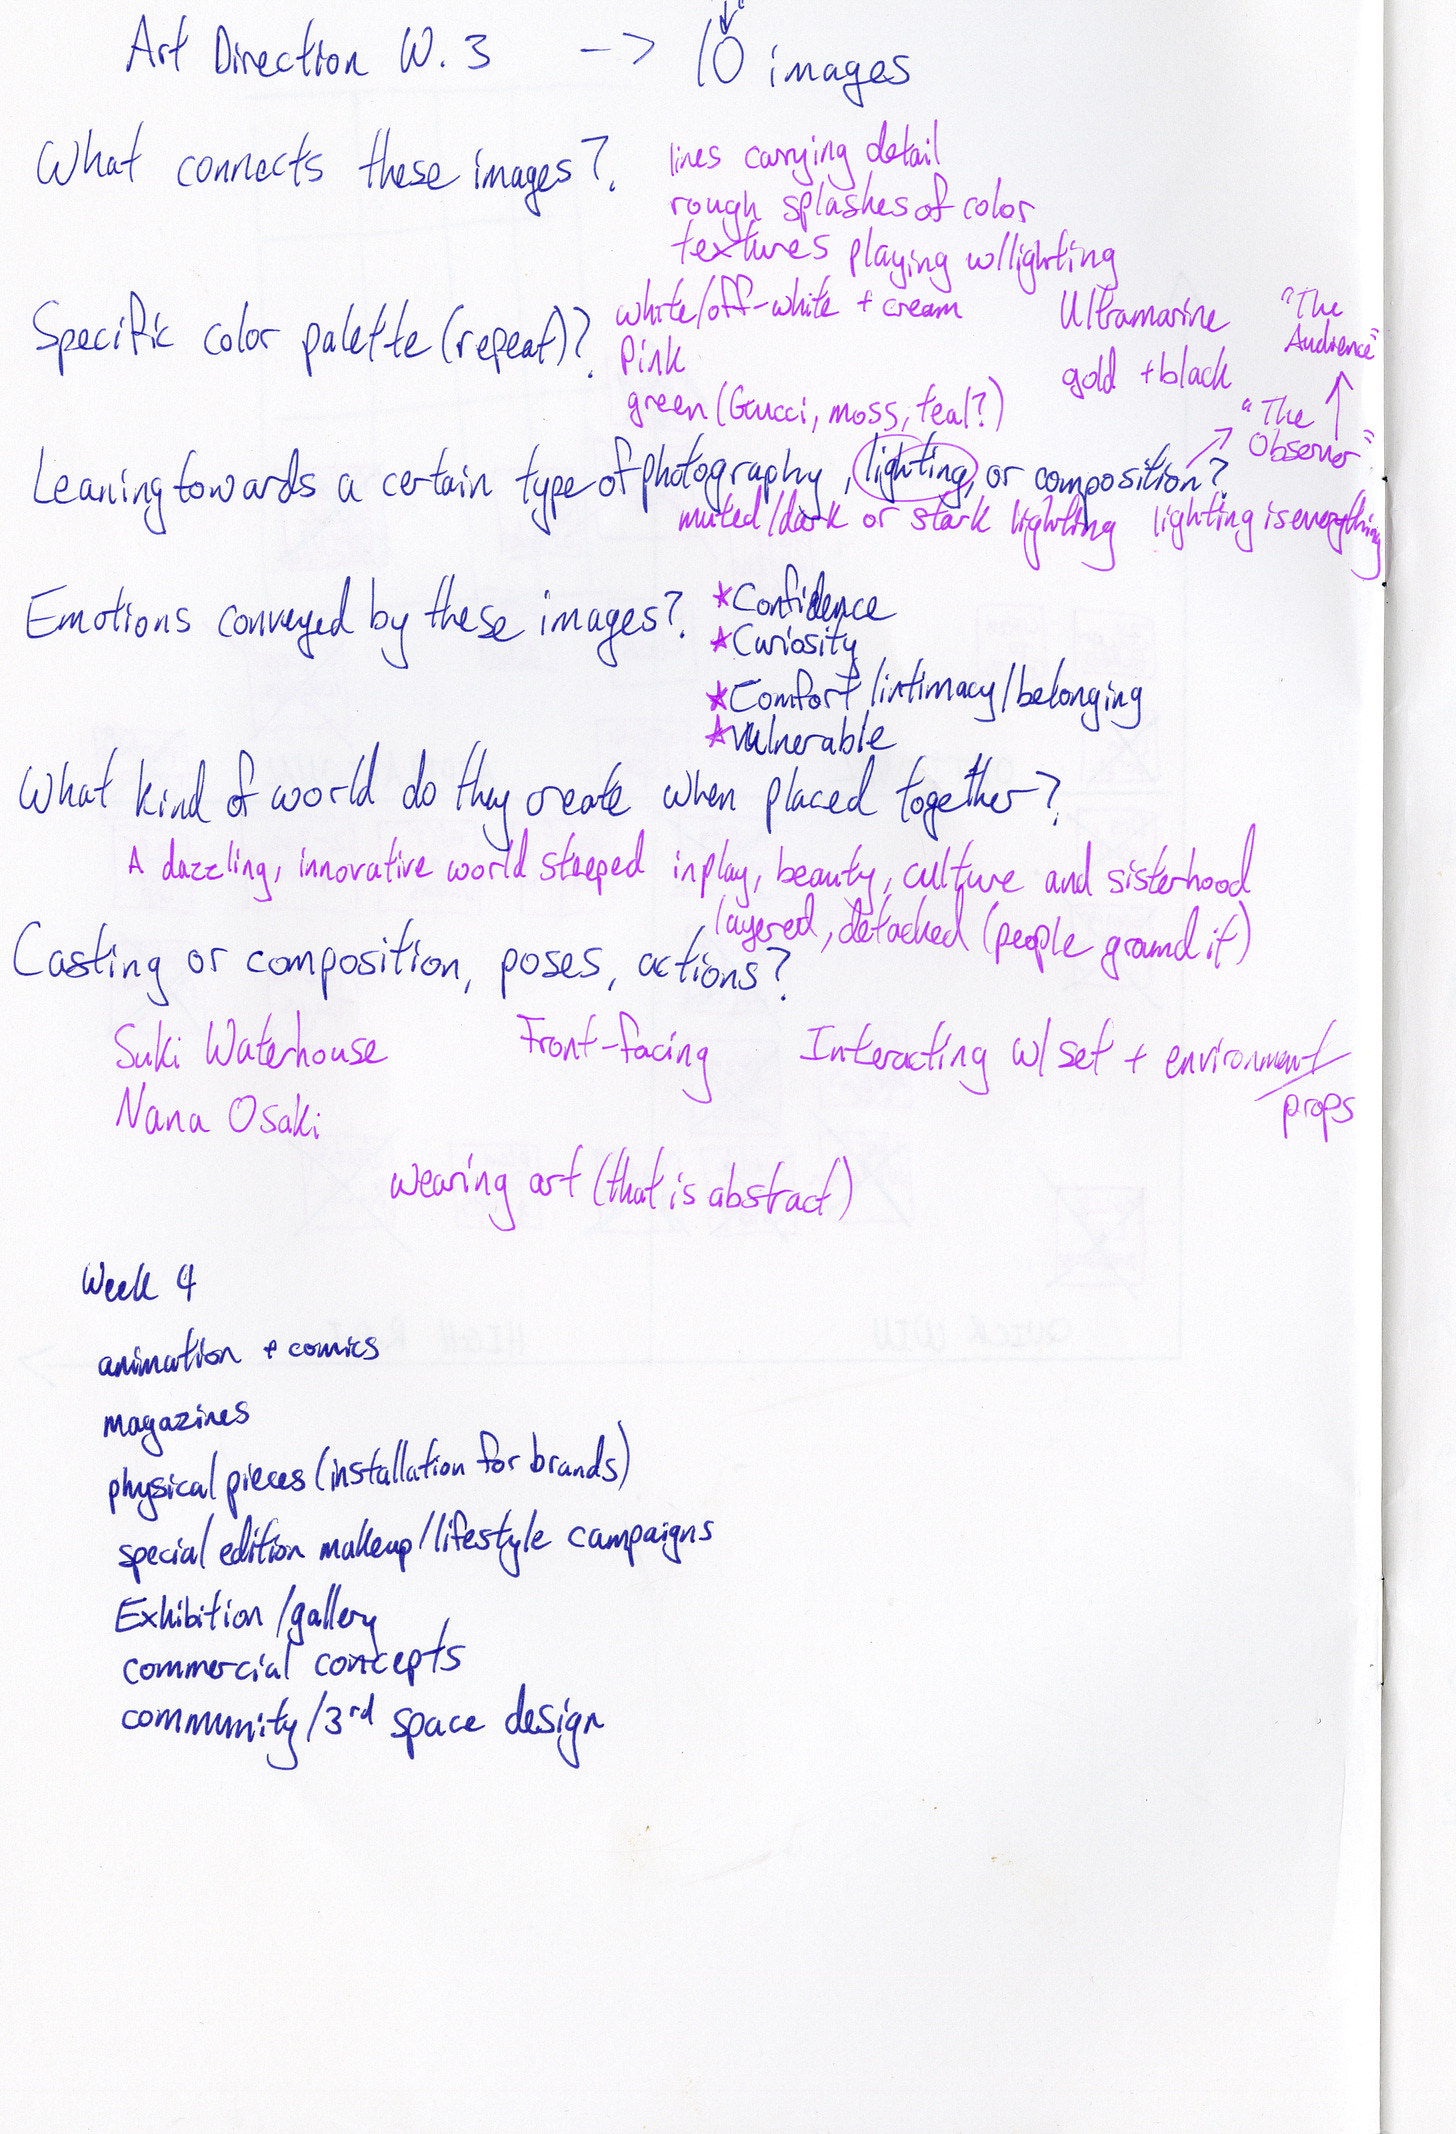 Art Direction W. 3 --> 10 images
What connects these images?
lines carrying detail
rough splashes of color
textures playing w/lighting
Specific color palette (repeat)?
white/off-white + cream
Pink
green (Gucci, moss, teal?)
Ultramarine
gold + black
"The Audience"
"The Observer"
Leaning towards a certain type of photography, lighting, or composition?
muted/dark or stark lighting lighting is everything
Emotions conveyed by these images?
*Confidence
*Curiosity
*Comfort/intimacy/belonging
*vulnerable
What kind of world do they create when placed together?
A dazzling, innovative world steeped in play, beauty, culture and sisterhood
layered, detached (people ground it)
Casting or composition, poses, actions?
Suki Waterhouse Front-facing Interacting w/ set + environment/
props
Nana Osaki
wearing art (that is abstract)
Week 4
animation + comics
magazines
physical pieces (installation for brands)
special edition makeup/lifestyle campaigns
Exhibition/gallery
commercial concepts
community/3rd space design
QUICK WIN